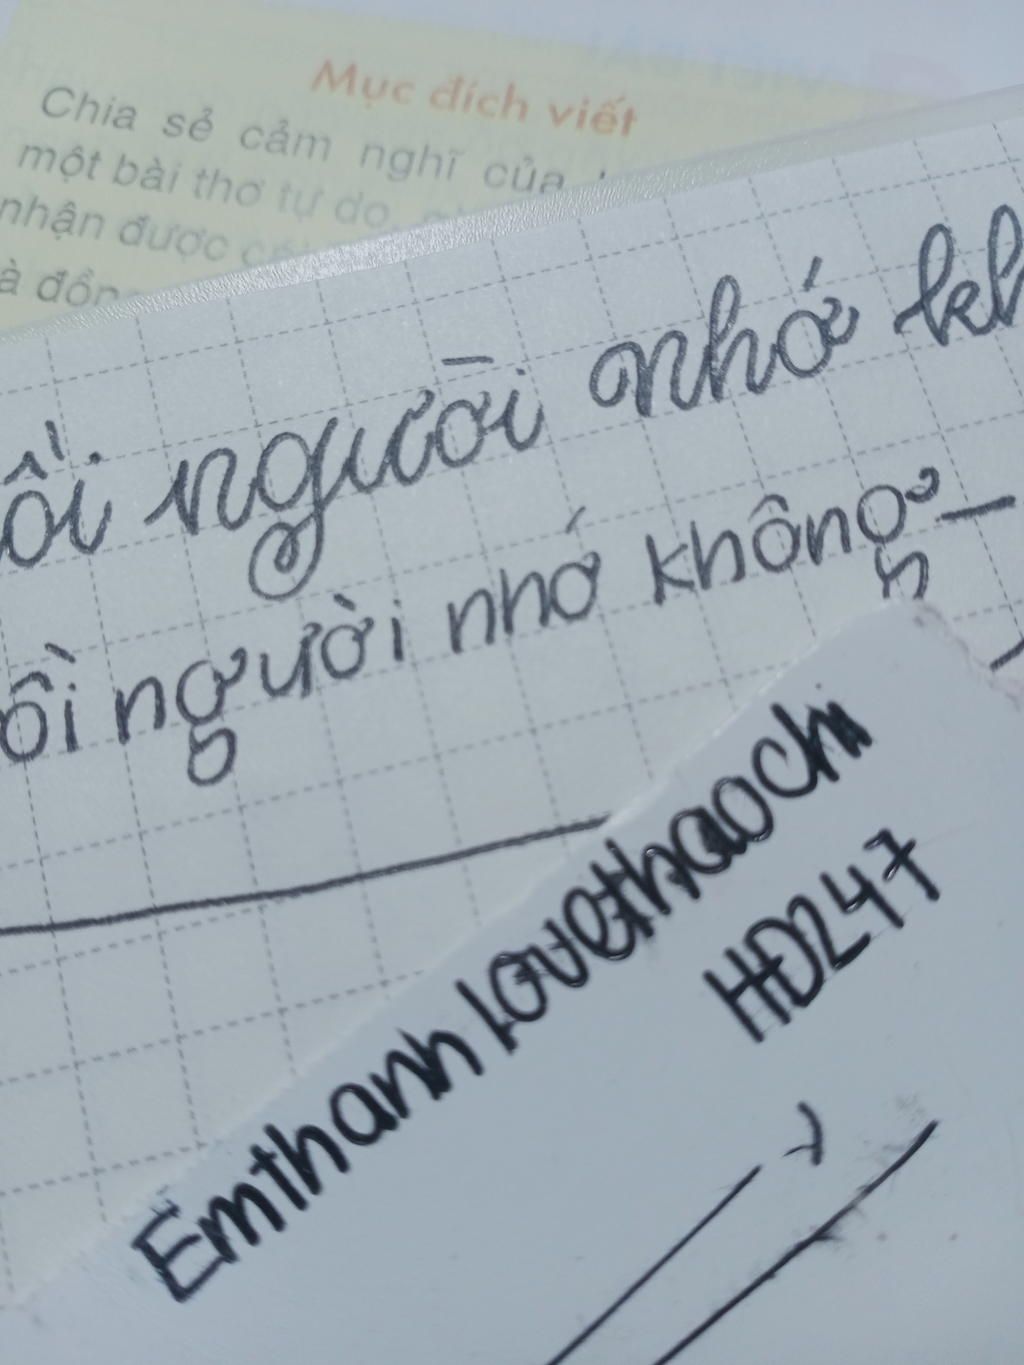 Mục đích viết
Chia sẻ cảm nghĩ của
một bài thơ tự do
nhận được
à đồn
ồi người nhớ kh
ồi người nhớ không
Emthanh lovethaochi
HĐ247